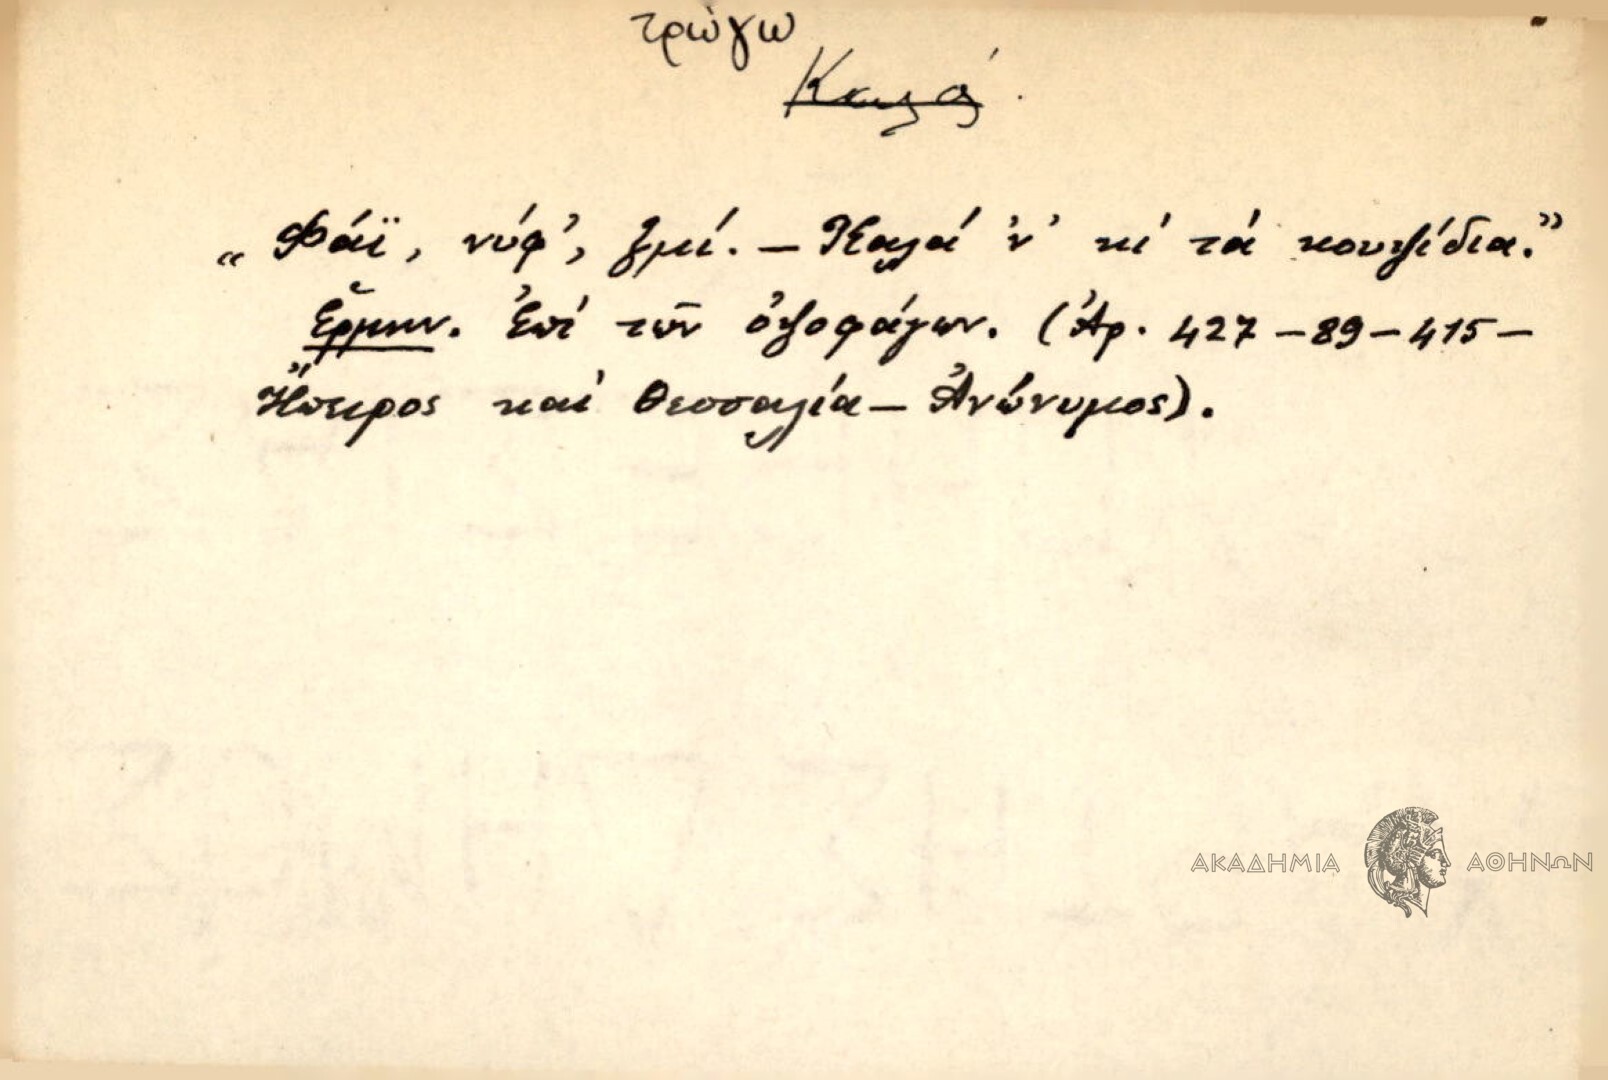 τρώγω
Καλά.
„Φάϊ, νύφ', ζμί. – Καλά 'ν' κί τά κουψίδια."
Ἑρμην. Ἐπί τῶν ὀψοφάγων. (Ἀρ. 427 – 89 – 415 –
Ἤπειρος καί Θεσσαλία – Ἀνώνυμος).
ΑΚΑΔΗΜΙΑ ΑΘΗΝΩΝ